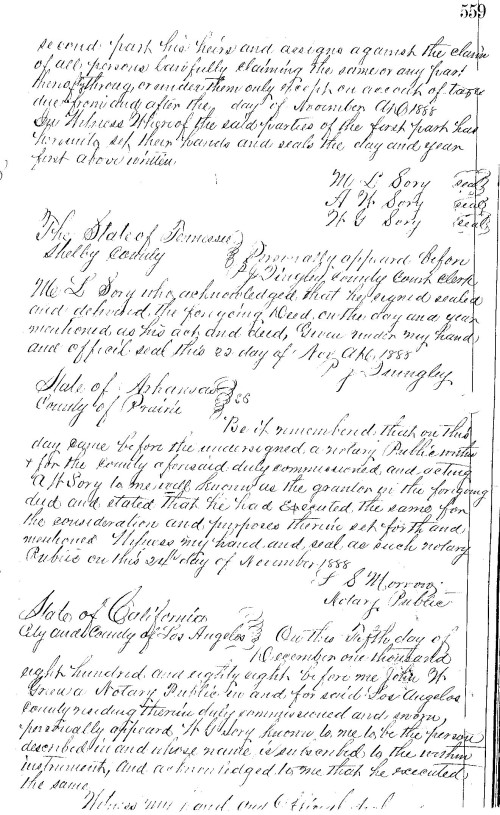 559
second part his heirs and assigns against the claim
of all persons lawfully claiming the same or any part
thereof through or under them only except on account of taxes
due from and after the day of November AD 1888
In Witness Whereof the said parties of the first part has
hereunto set their hands and seals the day and year
first above written.
M L Sory seal
A H Sory seal
W G Sory seal
The State of Tennessee
Shelby County Personally appeard before
P J Quigley County Court Clerk
M L Sory who acknowledged that he signed sealed
and delivered the foregoing Deed on the day and year
mentioned as his act and deed, Given under my hand
and official seal this 22 day of Nov AD 1888
P J Quigley
State of Arkansas
County of Prairie SS
Be it remembered that on this
day came before the undersigned a notary Public within
& for the County aforesaid duly commissioned and acting
A H Sory to me well known as the grantor in the foregoing
deed and stated that he had executed the same for
the consideration and purposes therein set forth and
mentioned Witness my hand and seal as such notary
Public on this 24th day of November 1888
L S Morrow
Notary Public
State of California
City and County of Los Angelos On this Fifth day of
December one thousand
eight hundred and eighty eight before me John W
a Notary Public in and for said Los Angelos
County residing therein duly commissioned and sworn,
personally appeard W G Sory known to me to be the person
described in and whose name is subscribed to the within
instrument, and acknowledged to me that he executed
the same
Witness my hand and Official seal